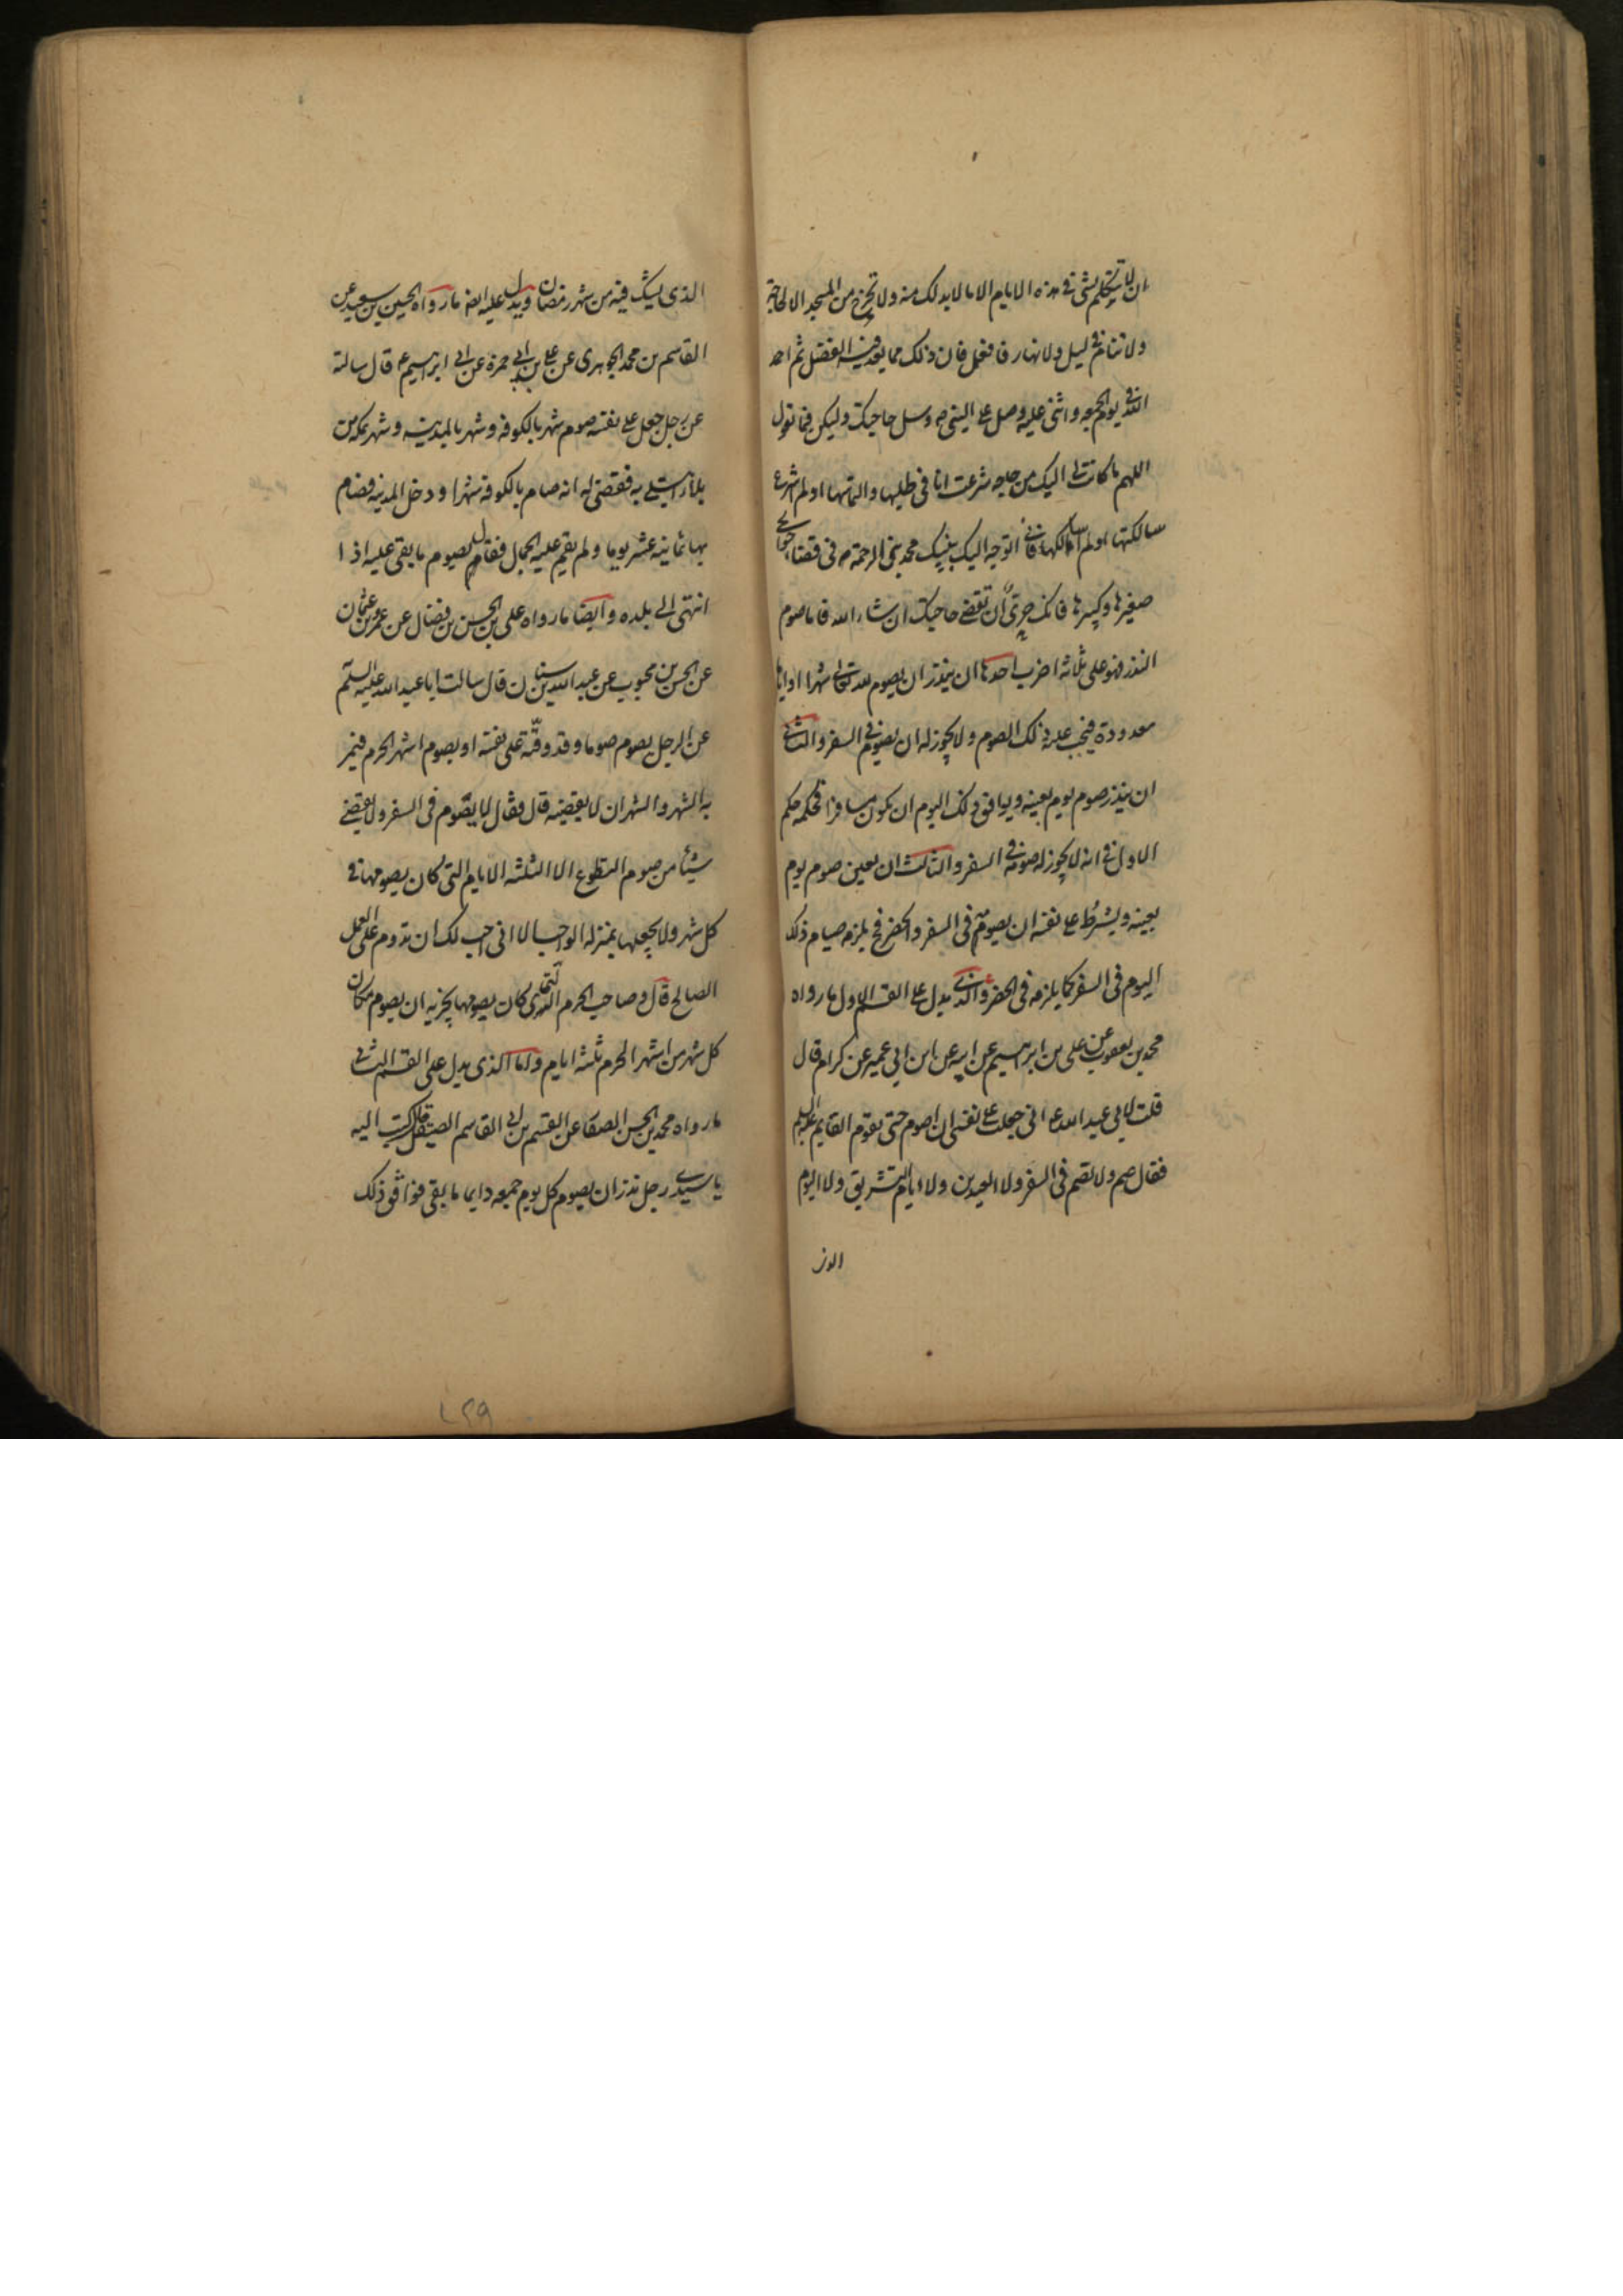 ان لا تتكلم بشئ فى هذه الايام الا ما لا بد لك منه ولا تخرج من المسجد الا لحاجة
ولا تنام فى ليل ولا نهار فافعل فان ذلك مما يعد فيه الفضل ثم احمد
الله فى يوم الجمعه واثن عليه وصل على النبى ص وسل حاجتك وليكن فيما تقول
اللهم ما كانت لى اليك من حاجه شرعت انا فى طلبها والتماسها او لم اشرع
سالتكها او لم اسالكها فانى اتوجه اليك بنبيك محمد نبى الرحمة ص فى قضاء حوائجى
صغيرها وكبيرها فانك حرى ان تقضى حاجتك ان شاء الله فاما صوم
النذر فهو على ثلاثه اضرب احدها ان ينذر ان يصوم لله تعالى شهرا او اياما
معدودة فيجب عليه ذلك الصوم ولا يجوز له ان يصوم فى السفر والثانى
ان ينذر صوم يوم بعينه ويوافق ذلك اليوم ان يكون مسافرا فحكمه حكم
الاول فى انه لا يجوز له صومه فى السفر والثالث ان يعين صوم يوم
بعينه ويشرط على نفسه ان يصومه فى السفر والحضر فح يلزمه صيام ذلك
اليوم فى السفر كما يلزمه فى الحضر والذى يدل على القسم الاول ما رواه
محمد بن يعقوب عن على بن ابرهيم عن ابيه عن ابن ابى عمير عن كرام قال
قلت لابى عبد الله ع انى جعلت على نفسى ان اصوم حتى يقوم القايم عليه السلم
فقال صم ولا تصم فى السفر ولا العيدين ولا ايام التشريق ولا اليوم
الذى
الذى يشك فيه من شهر رمضان ويدل عليه ايضا ما رواه الحسين بن سعيد عن
القاسم بن محمد الجوهرى عن على بن ابى حمزة عن ابى ابرهيم ع قال سالته
عن رجل جعل على نفسه صوم شهر بالكوفه وشهر بالمدينه وشهر بمكه من
بلاء ابتلى به فقضى له انه صام بالكوفة شهرا ودخل المدينه فصام
بها ثمانيه عشر يوما ولم يقم عليه الجمال فقال يصوم ما بقى عليه اذا
انتهى الى بلده وايضا ما رواه على بن الحسن بن فضال عن عمرو بن عثمان
عن الحسن بن محبوب عن عبد الله بن سنان قال سالت ابا عبد الله عليه السلم
عن الرجل يصوم صوما وقد وقته على نفسه او يصوم اشهر الحرم فيمر
به الشهر والشهران لا يقضيه قال فقال لا يصوم فى السفر ولا يقضى
شيئا من صوم التطوع الا الثلثه الايام التى كان يصومها فى
كل شهر ولا يجعلها بمنزلة الواجب الا انى احب لك ان تدوم على العمل
الصالح قال وصاحب الحرم التى كان يصومها يجزيه ان يصوم مكان
كل شهر من اشهر الحرم ثلثه ايام واما الذى يدل على القسم الثانى
ما رواه محمد بن الحسن الصفار عن القسم بن ابى القاسم الصيقل قال كتب اليه
يا سيدى رجل نذر ان يصوم كل يوم جمعه دايما ما بقى فوافق ذلك